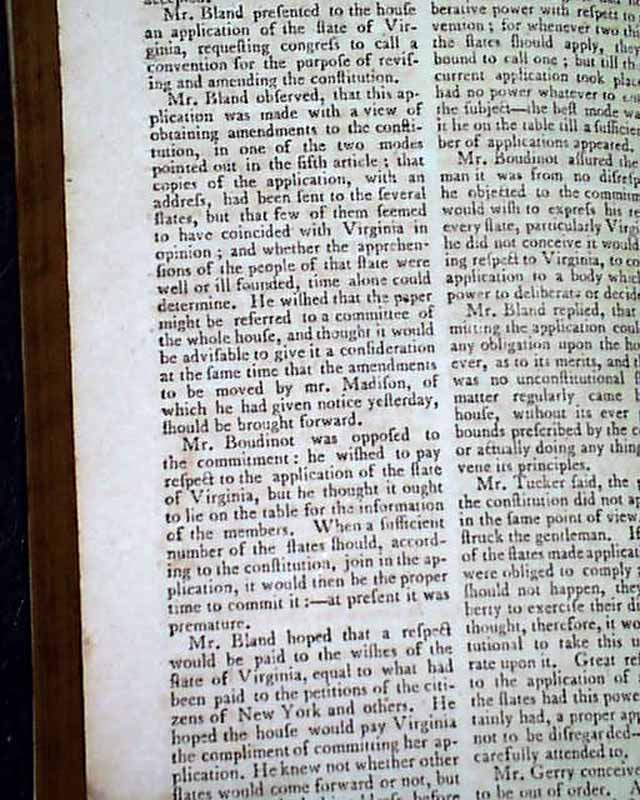 Mr. Bland preſented to the houſe
an application of the ſtate of Vir-
ginia, requeſting congreſs to call a
convention for the purpoſe of reviſ-
ing and amending the conſtitution.
Mr. Bland obſerved, that this ap-
plication was made with a view of
obtaining amendments to the conſti-
tution, in one of the two modes
pointed out in the fifth article ; that
copies of the application, with an
addreſs, had been ſent to the ſeveral
ſtates, but that few of them ſeemed
to have coincided with Virginia in
opinion ; and whether the apprehen-
ſions of the people of that ſtate were
well or ill founded, time alone could
determine. He wiſhed that the paper
might be referred to a committee of
the whole houſe, and thought it would
be adviſable to give it a conſideration
at the ſame time that the amendments
to be moved by mr. Madiſon, of
which he had given notice yeſterday,
ſhould be brought forward.
Mr. Boudinot was oppoſed to
the commitment : he wiſhed to pay
reſpect to the application of the ſtate
of Virginia, but he thought it ought
to lie on the table for the information
of the members. When a ſufficient
number of the ſtates ſhould, accord-
ing to the conſtitution, join in the ap-
plication, it would then be the proper
time to commit it :—at preſent it was
premature.
Mr. Bland hoped that a reſpect
would be paid to the wiſhes of the
ſtate of Virginia, equal to what had
been paid to the petitions of the citi-
zens of New York and others. He
hoped the houſe would pay Virginia
the compliment of committing her ap-
plication. He knew not whether other
ſtates would come forward or not, but
berative power with reſpect to
vention ; for whenever two th
the ſtates ſhould apply, they
bound to call one ; but till th
current application took plac
had no power whatever to
the ſubject—the beſt mode wa
it lie on the table till a ſufficie
ber of applications appeared.
Mr. Boudinot aſſured the
man it was from no diſreſp
he objected to the commitm
would wiſh to expreſs his r
every ſtate, particularly Virgi
he did not conceive it would
ing reſpect to Virginia, to co
application to a body which
power to deliberate or decid
Mr. Bland replied, that
mitting the application coul
any obligation upon the ho
ever, as to its merits, and th
was no unconſtitutional
matter regularly came b
houſe, without its ever
bounds preſcribed by the c
or actually doing any thing
vene its principles.
Mr. Tucker ſaid, the
the conſtitution did not ap
in the ſame point of view
ſtruck the gentleman. If
of the ſtates made applicat
were obliged to comply
ſhould not happen, they
berty to exerciſe their di
thought, therefore, it wo
tutional to take this
rate upon it. Great reſ
to the application of
the ſtates had this powe
tainly had, a proper app
not to be diſregarded—
carefully attended to.
Mr. Gerry conceive
to be out of order.